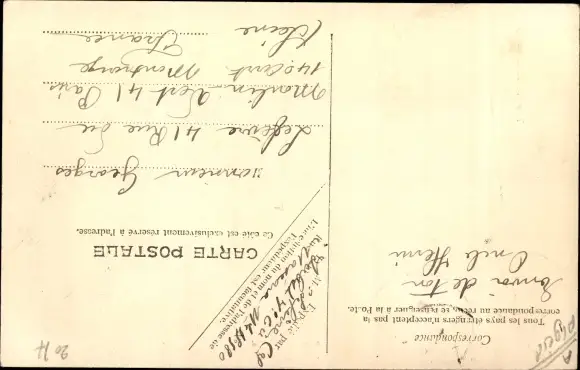 CARTE POSTALE
Ce côté est exclusivement réservé à l'adresse.
Correspondance
Tous les pays étrangers n'acceptent pas la
correspondance au recto, se renseigner à la Poste.
Envoi de ton
Oncle Henri
Expédié par
L'inscription du nom et de l'adresse de
l'expéditeur est facultative.
Monsieur Georges
Lefèvre 41 Rue du
Moulin Vert 41 Paris
14e arrt Montrouge
Seine France